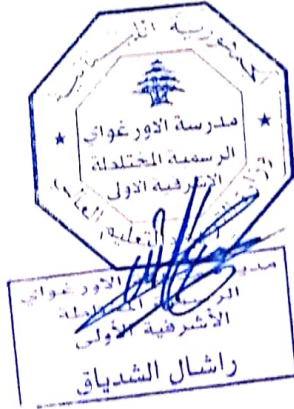 الجمهورية اللبنانية
مدرسة الاوروغواي
الرسمية المختلطة
الاشرفية الاولى
التعليم العالي
الاوروغواي
الرسمية المختلطة
الأشرفية الأولى
راشال الشدياق